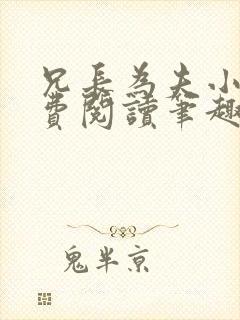 兄長為夫小
費閱讀筆趣
鬼半京